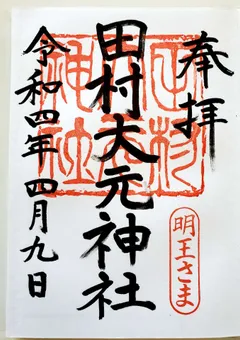 奉拝
田村大元神社
明王さま
令和四年四月九日